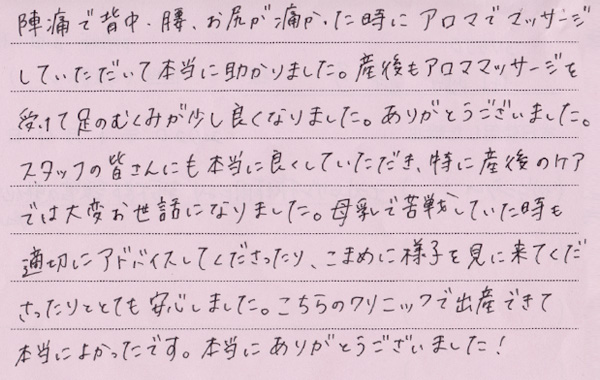 陣痛で背中、腰、お尻が痛かった時にアロマでマッサージ
していただいて本当に助かりました。産後もアロママッサージを
受けて足のむくみが少し良くなりました。ありがとうございました。
スタッフの皆さんにも本当に良くしていただき、特に産後のケア
では大変お世話になりました。母乳で苦戦していた時も
適切にアドバイスしてくださったり、こまめに様子を見に来てくだ
さったりととても安心しました。こちらのクリニックで出産できて
本当によかったです。本当にありがとうございました!